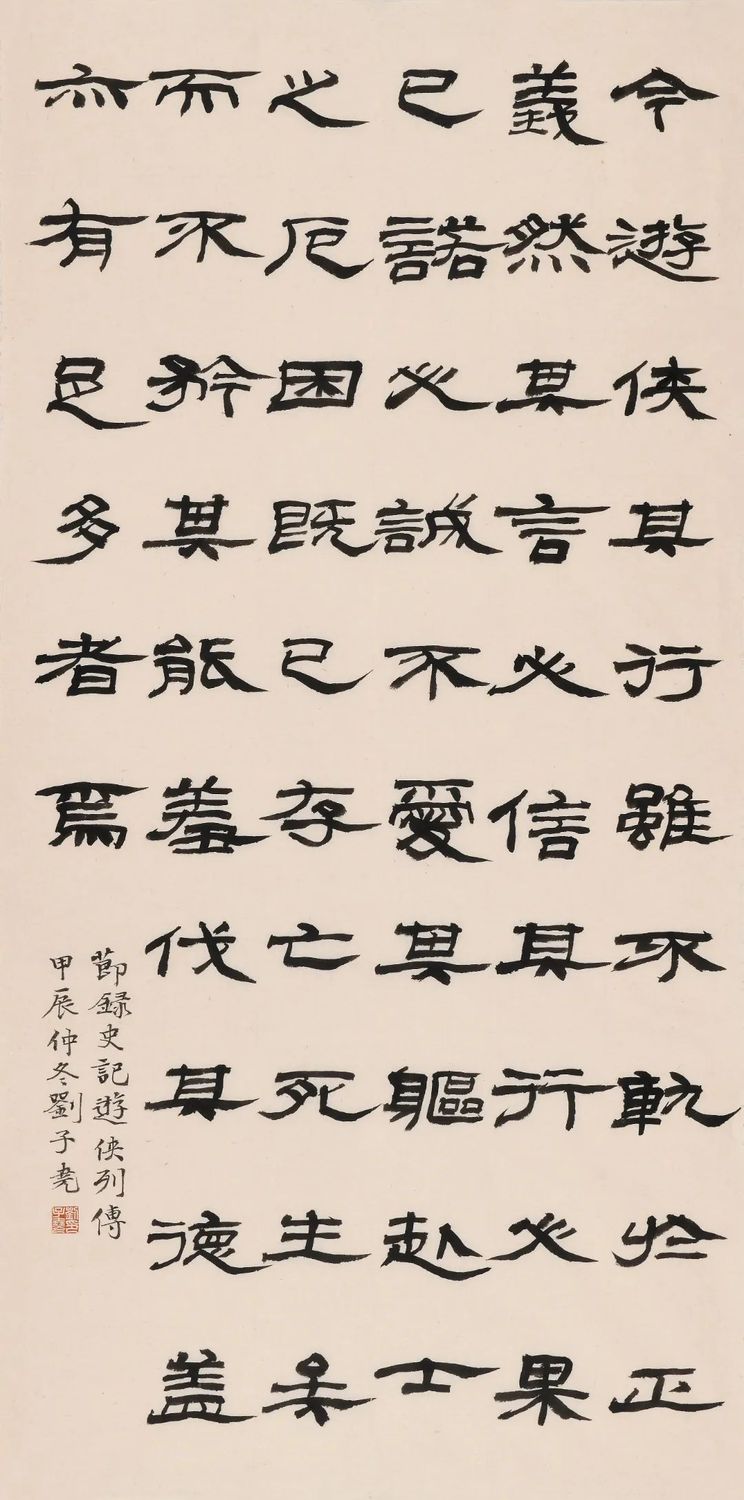 今遊俠其行雖不軌於正
義然其言必信其行必果
已諾必誠不愛其軀赴士
之厄困既已存亡死生矣
而不矜其能羞伐其德蓋
亦有足多者焉
節録史記遊俠列傳
甲辰仲冬劉子堯